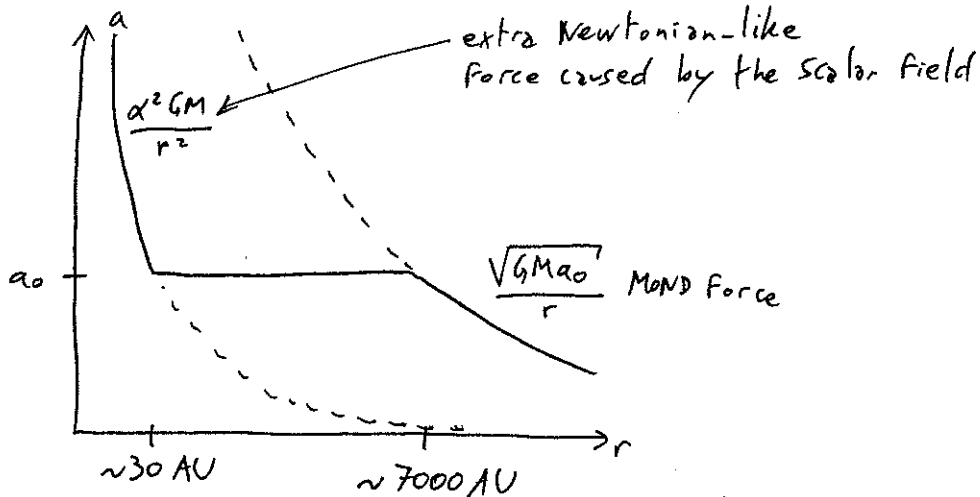 a
extra Newtonian-like
force caused by the scalar field
α² GM
r²
a₀
√GMa₀
r
MOND force
r
~30 AU
~7000 AU